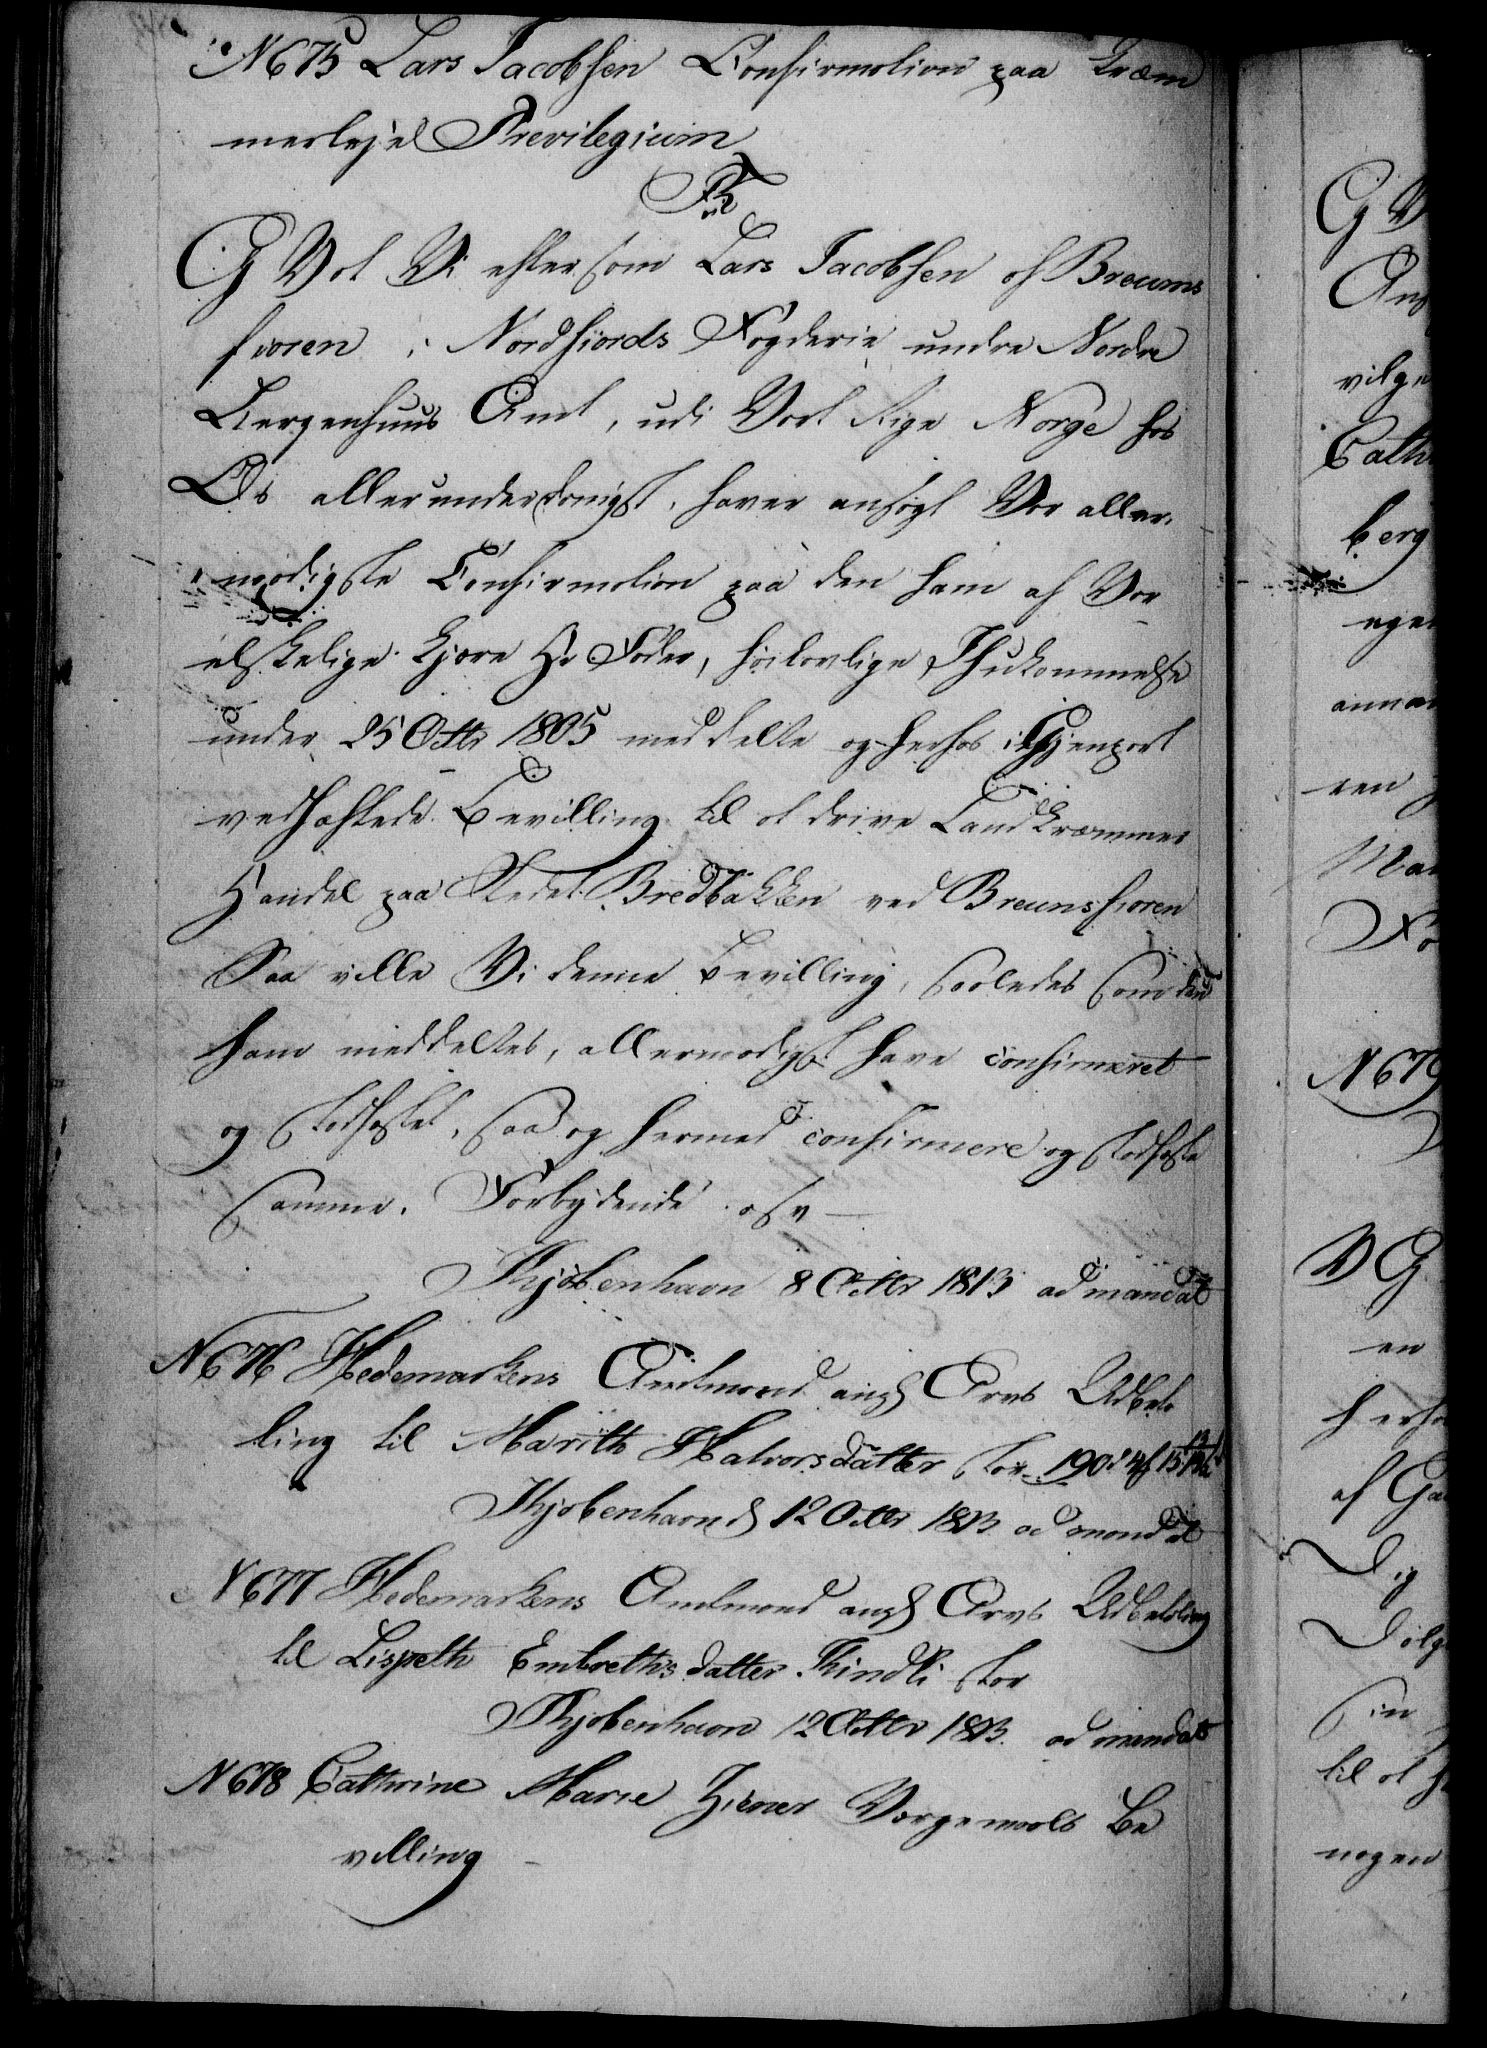 N 675 Lars Jacobsen Confirmation paa Kræm
merleje Previlegium
F R
G V at Vi eftersom Lars Jacobsen af Breums
fioren i Nordfiords Fogderie undre Nordre
Bergenhuus Amt, udi Vort Rige Norge hos
Os allerunderdanigst haver ansøgt Vor aller
naadigste Confirmation paa den ham af Vor
elskelige kjære Hr Fader, høilovlige Ihukommelse
under 25 Octbr 1805 meddelte og herhos i Gjenpart
vedhæftede Bevilling til at drive Landkræmmer
Handel paa Stedet Bredbakken ved Breumsfioren
Saa ville Vi denne Bevilling, saaledes som den
ham meddeltes, allernaadigst have confirmeret
og stadfæstet, saa og hermed confirmere og stadfæste
samme. Forbydende osv
Kjøbenhavn 8 Octbr 1813 ad mandat
N 676 Hedemarkens Amtmand angd Arvs Udbeta
ling til Marith Halvorsdatter stor 190 rd 4 ß 15
Kjøbenhavn d 12 Octbr 1813 ad mandat
N 677 Hedemarkens Amtmand angd Arvs Udbetaling
til Lispeth Embrethsdatter Kindli stor
Kjøbenhavn 12 Octbr 1813. ad mandat
N 678 Cathrine Marie Ziener Værgemaals Be
villing
G V
Ans
vilge
Cath
berg
egen
annam
ren
Mar
Fo
N 679
V G
en
herho
af Ga
Dig
Dilge
sin
til at h
nogen